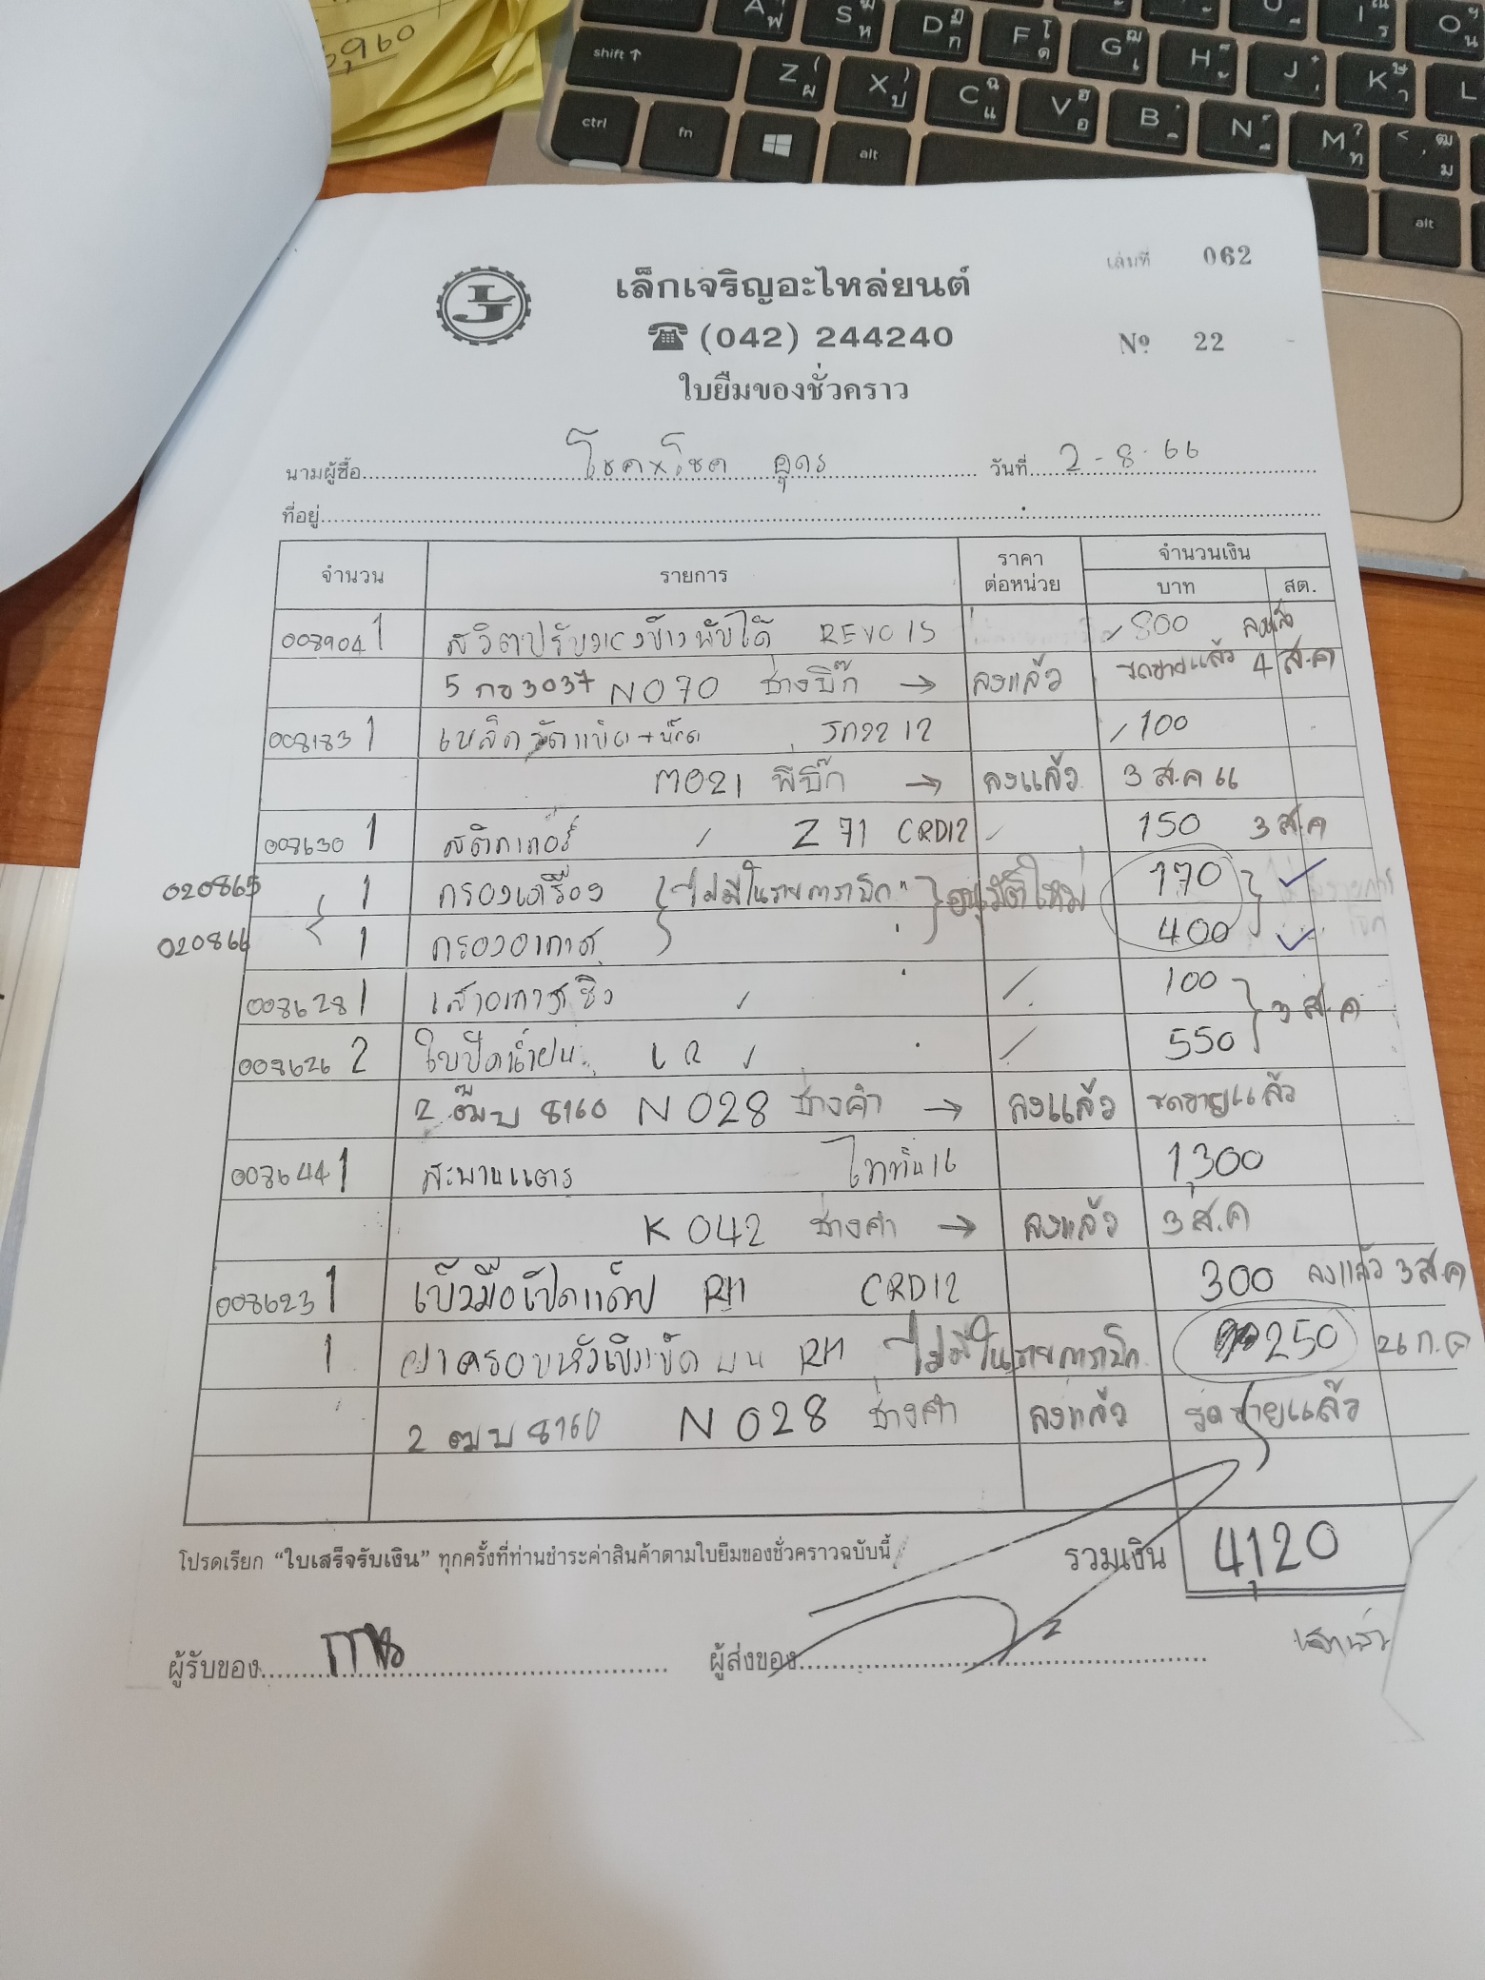 0,960
เล่มที่ 062
เล็กเจริญอะไหล่ยนต์
(042) 244240
Nº 22
ใบยืมของชั่วคราว
นามผู้ซื้อ โชคxโชค อุดร วันที่ 2-8-66
ที่อยู่
จำนวน รายการ ราคาต่อหน่วย จำนวนเงิน
บาท สต.
008904 1 สวิตปรับมองข้างพับได้ REVO 15 800 ลงแล้ว
5 กข 3037 N070 ช่างบิ๊ก → ลงแล้ว รถขายแล้ว 4 ส.ค
008183 1 12 100
M021 พี่บิ๊ก → ลงแล้ว 3 ส.ค
008630 1 สติกเกอร์ Z71 CRD12 150 3 ส.ค
020865 1 กรองเครื่อง "ไม่มีในรายการเบิก" อนุมัติใหม่ 170
020866 1 กรองอากาศ 400
008628 1 เสาอากาศซิ่ง 100 3 ส.ค
008626 2 ใบปัดน้ำฝน L R 550
2 ฒบ 8160 N028 ช่างคำ → ลงแล้ว รถขายแล้ว
008644 1 สะพานแตร ไททัน 16 1,300
K042 ช่างคำ → ลงแล้ว 3 ส.ค
008623 1 เบ้ามือเปิดแค็ป RH CRD12 300 ลงแล้ว 3 ส.ค
1 ฝาครอบหัวเข็มขัด บน RH ไม่มีในรายการเบิก 250 26 ก.ค
2 ฒบ 8160 N028 ช่างคำ ลงแล้ว รถขายแล้ว
โปรดเรียก "ใบเสร็จรับเงิน" ทุกครั้งที่ท่านชำระค่าสินค้าตามใบยืมของชั่วคราวฉบับนี้ รวมเงิน 4,120
ผู้รับของ ผู้ส่งของ